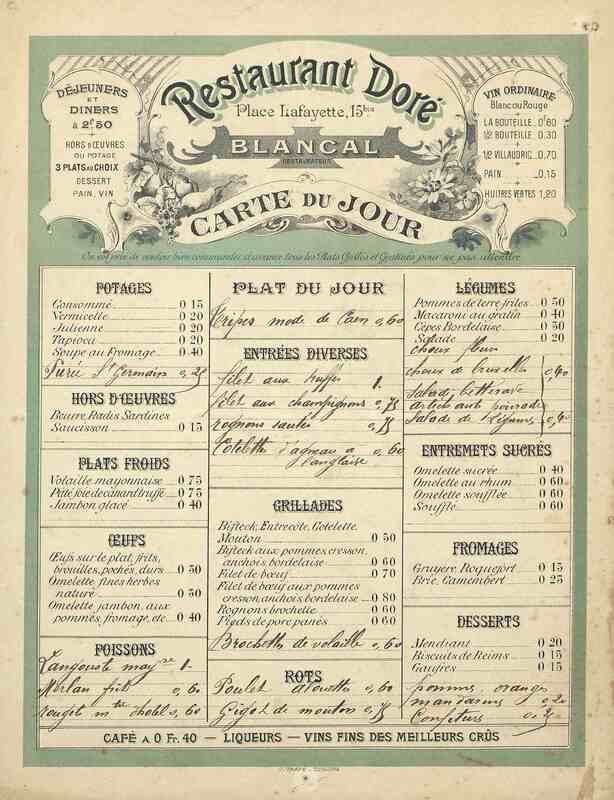 DÉJEUNERS
ET
DINERS
à 2f50
HORS D'ŒUVRES
OU POTAGE
3 PLATS AU CHOIX
DESSERT
PAIN, VIN
Restaurant Doré
Place Lafayette, 15bis
BLANCAL
RESTAURATEUR
CARTE DU JOUR
VIN ORDINAIRE
Blanc ou Rouge
LA BOUTEILLE 0f60
1/2 BOUTEILLE 0.30
1/2 VILLAUDRIC 0.70
PAIN 0.15
HUITRES VERTES 1,20
On est prié de vouloir bien commander d'avance tous les Plats Grillés et Gratinés pour ne pas attendre
POTAGES
Consommé 0 15
Vermicelle 0 20
Julienne 0 20
Tapioca 0 20
Soupe au Fromage 0 40
Purée St Germain 0,25
HORS D'ŒUVRES
Beurre, Radis, Sardines
Saucisson 0 15
PLATS FROIDS
Volaille mayonnaise 0 75
Pâté foie de canard truffé 0 75
Jambon glacé 0 40
ŒUFS
Œufs sur le plat, frits,
brouillés, pochés, durs 0 50
Omelette fines herbes
nature 0 50
Omelette jambon, aux
pommes, fromage, etc 0 40
POISSONS
Langouste mayse 1
Merlan frit 0,60
rouget m tre hotel 0,60
PLAT DU JOUR
Tripes mode de Caen 0,60
ENTRÉES DIVERSES
filet aux truffes 1.
filet aux champignons 0,75
rognons sautés 0,75
Cotelette d'agneau a 0,60
l'anglaise
GRILLADES
Bifteck, Entrecôte, Côtelette,
Mouton 0 50
Bifteck aux pommes, cresson,
anchois, bordelaise 0 60
Filet de bœuf 0 70
Filet de bœuf aux pommes
cresson, anchois, bordelaise 0 80
Rognons brochette 0 60
Pieds de porc panés 0 60
Brochette de volaille 0,60
ROTS
Poulet alouettes 0,60
Gigot de mouton 0,75
LÉGUMES
Pommes de terre frites 0 30
Macaroni au gratin 0 40
Cèpes Bordelaise 0 50
Salade 0 20
choux fleur
choux de bruxelles 0,40
Salade betterave
artichaut poivrade
Salade de Légumes 0,40
ENTREMETS SUCRÉS
Omelette sucrée 0 40
Omelette au rhum 0 60
Omelette soufflée 0 60
Soufflé 0 60
FROMAGES
Gruyère, Roquefort 0 15
Brie, Camembert 0 25
DESSERTS
Mendiant 0 20
Biscuits de Reims 0 15
Gaufres 0 15
pommes, oranges
mandarines 0,20
Confitures
CAFÉ A 0 Fr. 40 — LIQUEURS — VINS FINS DES MEILLEURS CRÛS